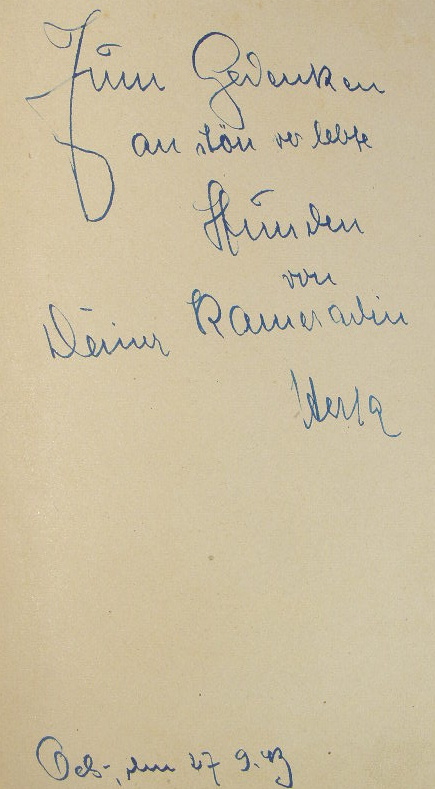 Zum Gedenken
an schön verlebte
Stunden
von
Deiner Kameradin
Herta
den 27 9. 43